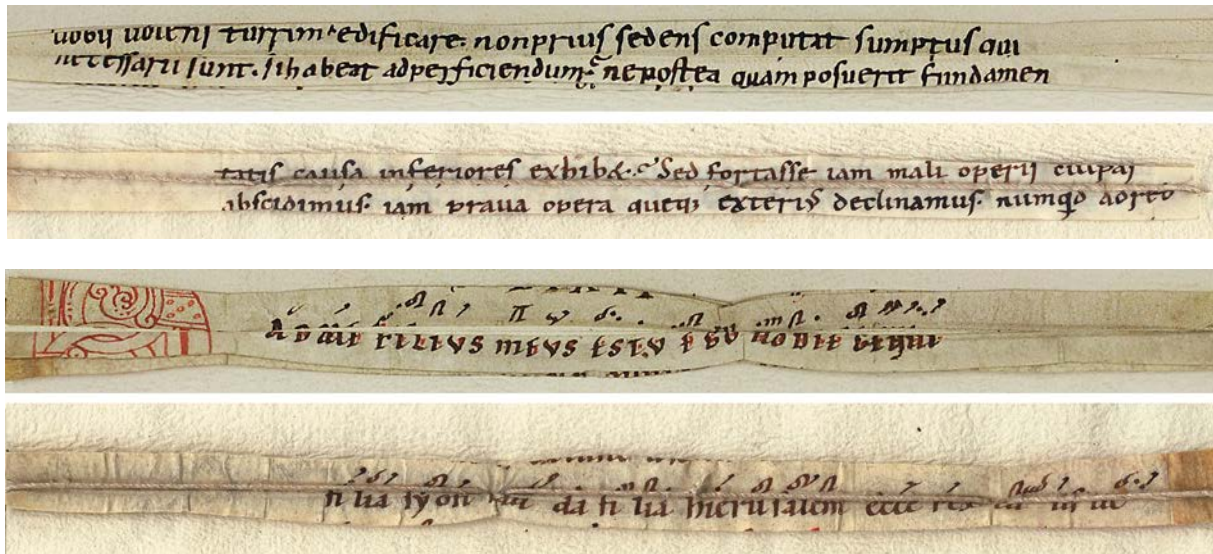 uobis uolens turrim edificare. non prius sedens computat sumptus qui
necessarii sunt. si habeat ad perficiendum. ne postea quam posuerit fundamen
tatis causa inferiores exhib&. Sed fortasse iam mali operis culpas
abscidimus. iam praua opera queq; exterius declinamus. numquid a
filius meus es tu ego
filia syon da filia hierusalem ecce rex